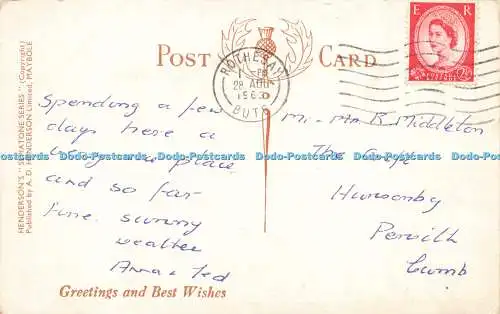 POST CARD
HENDERSON'S "SEMATONE SERIES" (Copyright)
Published by A. D. HENDERSON Limited, MAYBOLE
E R
ROTHESAY
PM
28 AUG
1960
BUTE
Spending a few
days here a
lovely place
and so far
fine sunny
weather
Anna & Ted
Mr. Mrs R. Middleton
The
Hunsonby
Penrith
Cumb
Greetings and Best Wishes
Dodo-Postcards Dodo-Postcards Dodo-Postcards Dodo-Postcards Dodo-Postcards